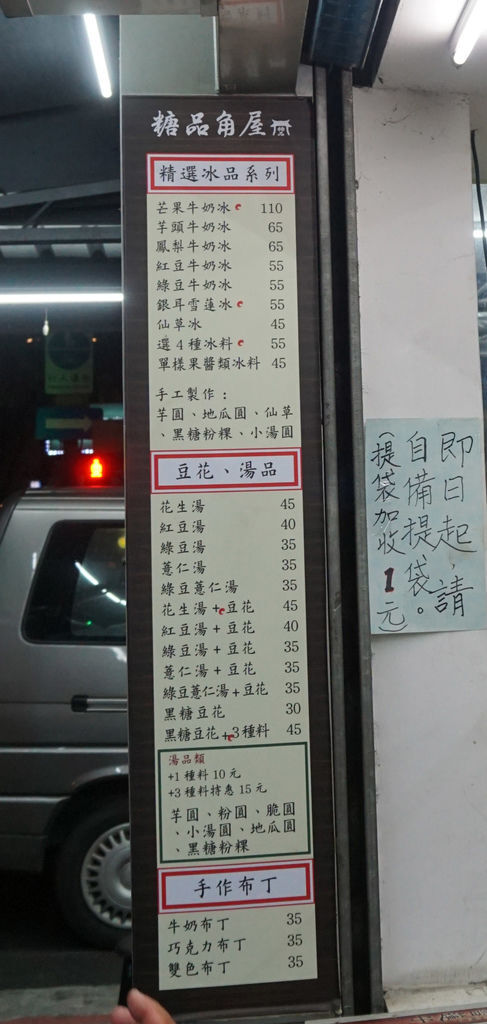 糖品角屋
精選冰品系列
芒果牛奶冰 110
芋頭牛奶冰 65
鳳梨牛奶冰 65
紅豆牛奶冰 55
綠豆牛奶冰 55
銀耳雪蓮冰 55
仙草冰 45
選4種冰料 55
單樣果醬類冰料 45
手工製作：
芋圓、地瓜圓、仙草
、黑糖粉粿、小湯圓
豆花、湯品
花生湯 45
紅豆湯 40
綠豆湯 35
薏仁湯 35
綠豆薏仁湯 35
花生湯+豆花 45
紅豆湯+豆花 40
綠豆湯+豆花 35
薏仁湯+豆花 35
綠豆薏仁湯+豆花 35
黑糖豆花 30
黑糖豆花+3種料 45
湯品類
+1種料10元
+3種料特惠15元
芋圓、粉圓、脆圓
、小湯圓、地瓜圓
、黑糖粉粿
手作布丁
牛奶布丁 35
巧克力布丁 35
雙色布丁 35
即日起，請
自備提袋。
（提袋加收1元）